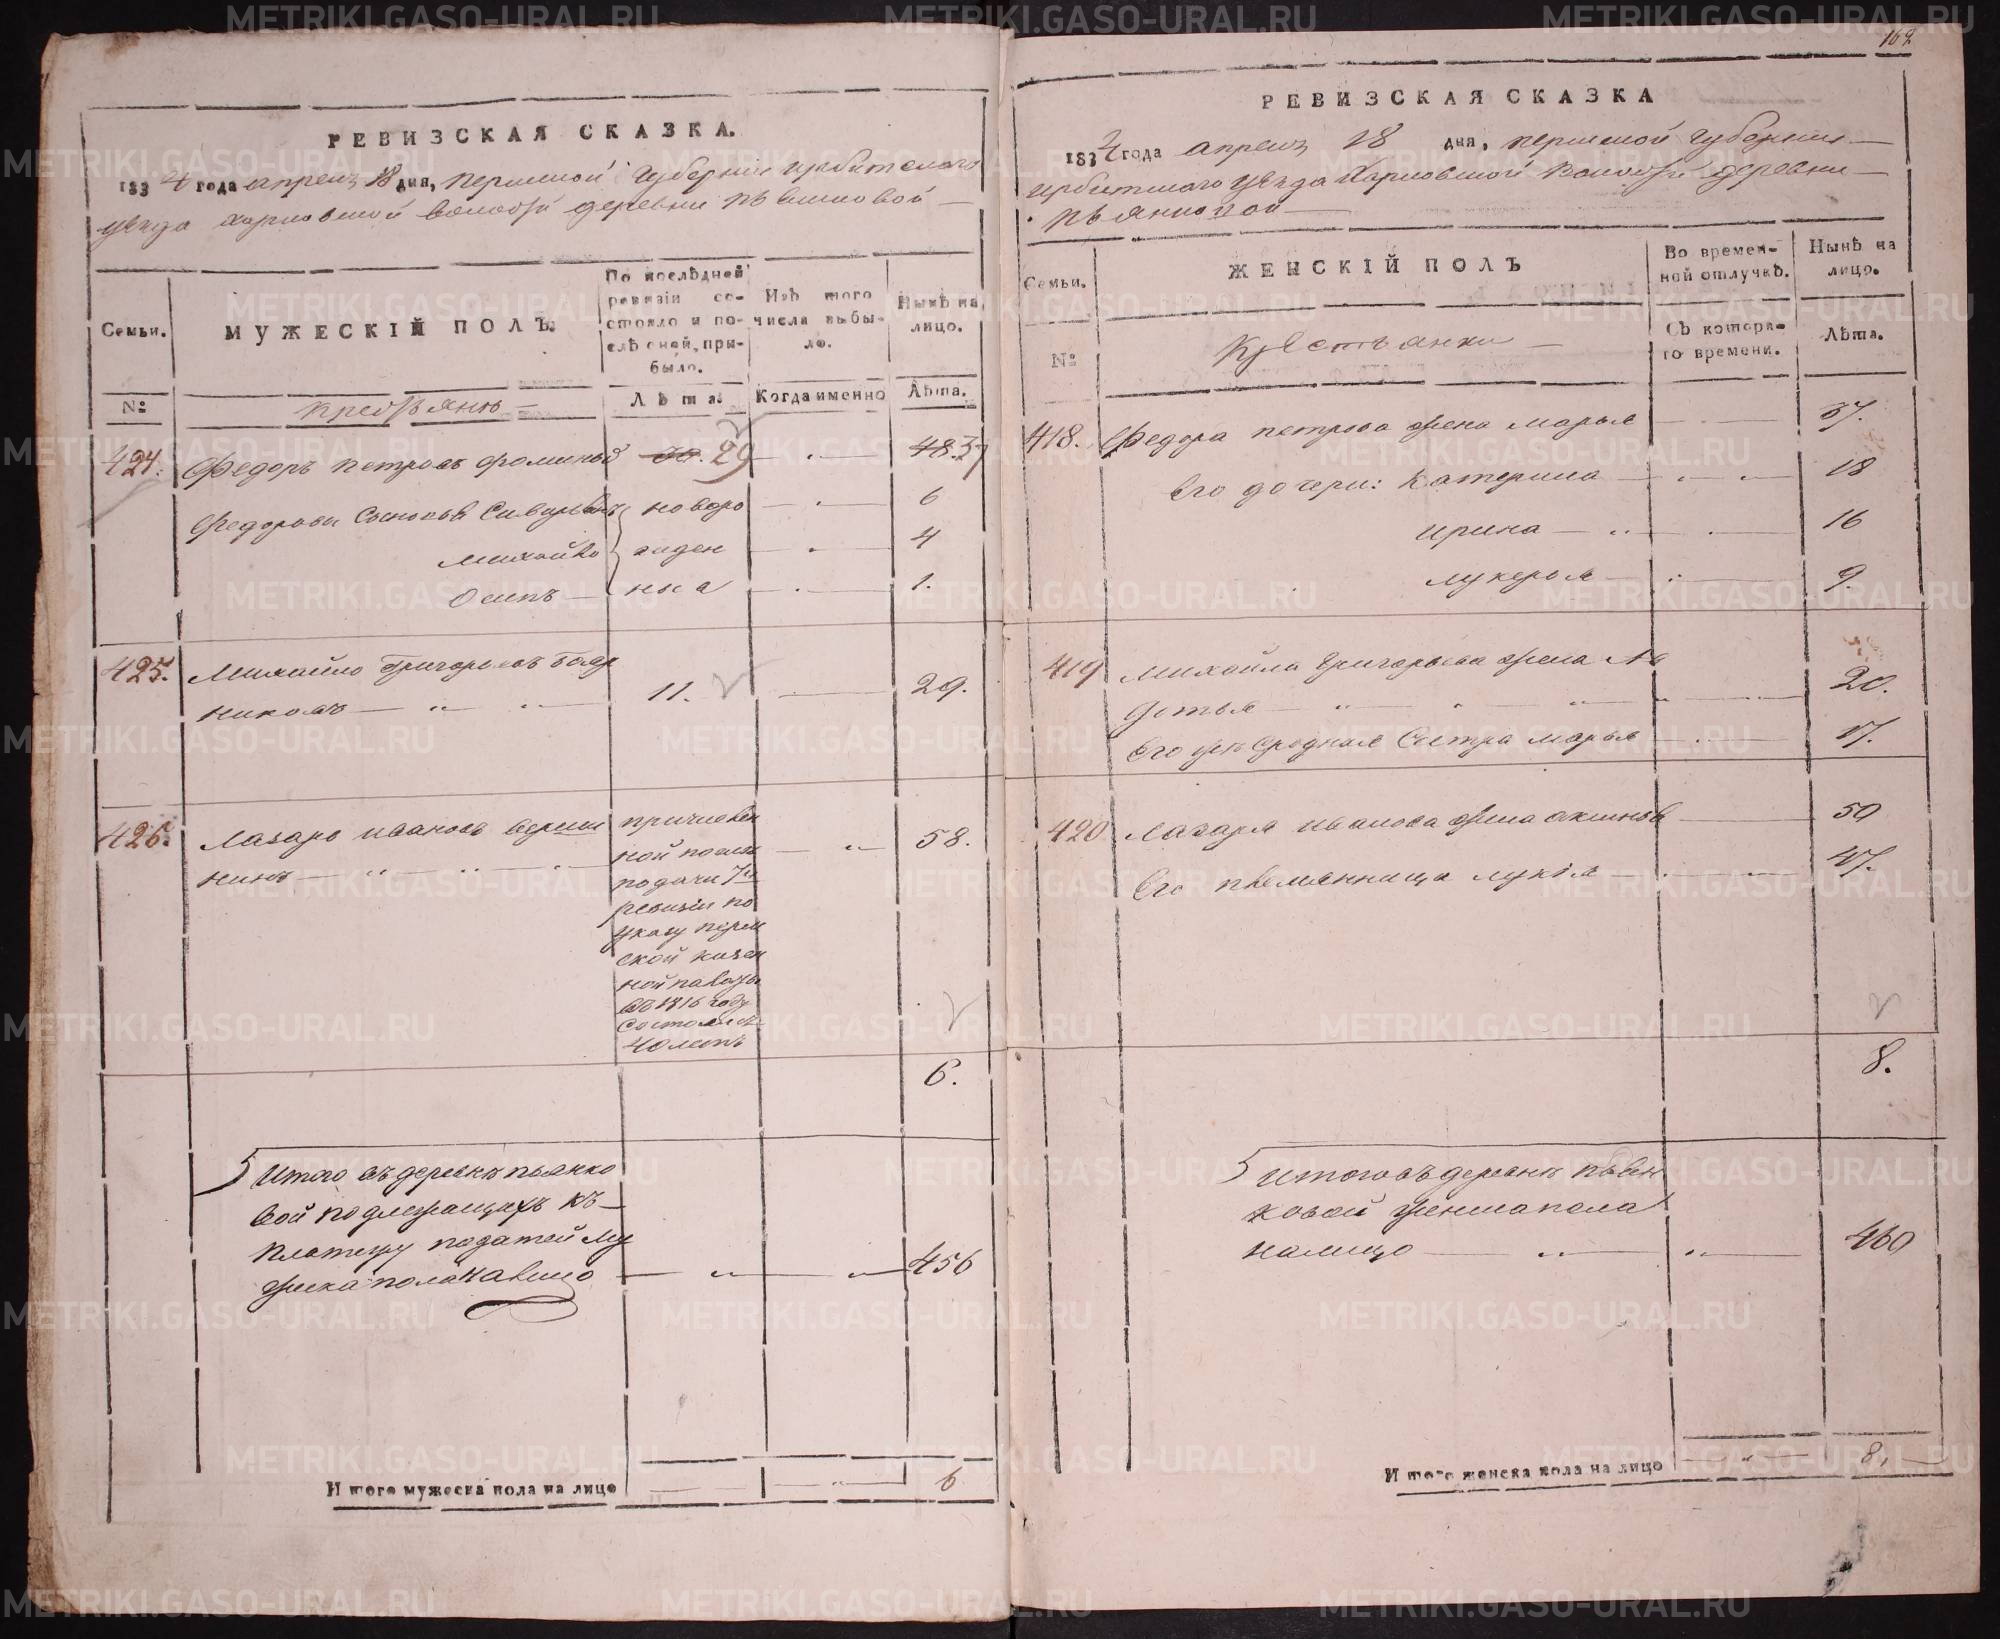 РЕВИЗСКАЯ СКАЗКА.
1834 года апреля 18 дня, пермской Губернии ирбитского
уезда харловской волости деревни пьянковой
Семьи.
МУЖЕСКІЙ ПОЛЪ.
По послѣдней ревизіи состояло и послѣ оней, прибыло.
Изъ того числа выбыло.
Нынѣ на лицо.
№
Крестьянъ
Лѣта.
Когда именно
Лѣта.
424. Федоръ петровъ 29 48. 37
Федоровы Сыновья новоро 6
Михайло жден 4
Осипъ ныя 1.
425. Михайло Григорьевъ бояр
никовъ 11. 29.
426. Лазарь ивановъ верши причислен
нинъ ной после 58.
подачи 7й
ревизіи по
указу перм
ской казен
ной палаты
въ 1816 году
40 летъ
6.
Итого въ деревне пьянко
вой подлежащихъ къ
платежу податей му
жска пола налицо 456
Итого мужеска пола на лице 6
162
РЕВИЗСКАЯ СКАЗКА
1834 года апреля 18 дня, пермской губернии
ирбитского уезда Харловской волости деревни
пьянковой
Семьи.
№
ЖЕНСКІЙ ПОЛЪ
Крестьянки
Во временной отлучкѣ.
Съ которого времени.
Нынѣ на лицо.
Лѣта.
418. Федора петрова жена марья 37.
Его дочери: Катерина 18
ирина 16
лукерья 9.
419 Михайла Григорьева жена Ав
дотья 20.
Его сродная Сестра марья 17.
420 Лазаря иванова жена аксинья 50
Его племянница лукія 47.
8.
Итого въ деревне пьян
ковой женска пола
налицо 460
Итого женска пола на лицо 8.
METRIKI.GASO-URAL.RU